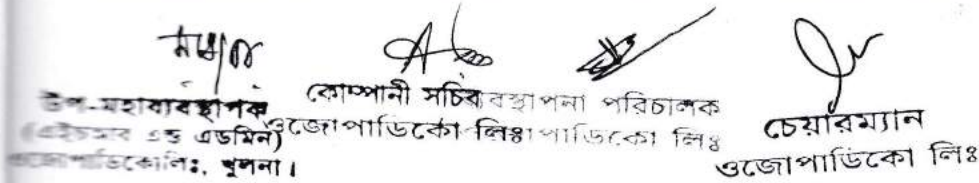 উপ-মহাব্যবস্থাপক
(এইচআর এন্ড এডমিন)
ওজোপাডিকোলিঃ, খুলনা।
কোম্পানী সচিব
ওজোপাডিকো লিঃ
ব্যবস্থাপনা পরিচালক
ওজোপাডিকো লিঃ
চেয়ারম্যান
ওজোপাডিকো লিঃ